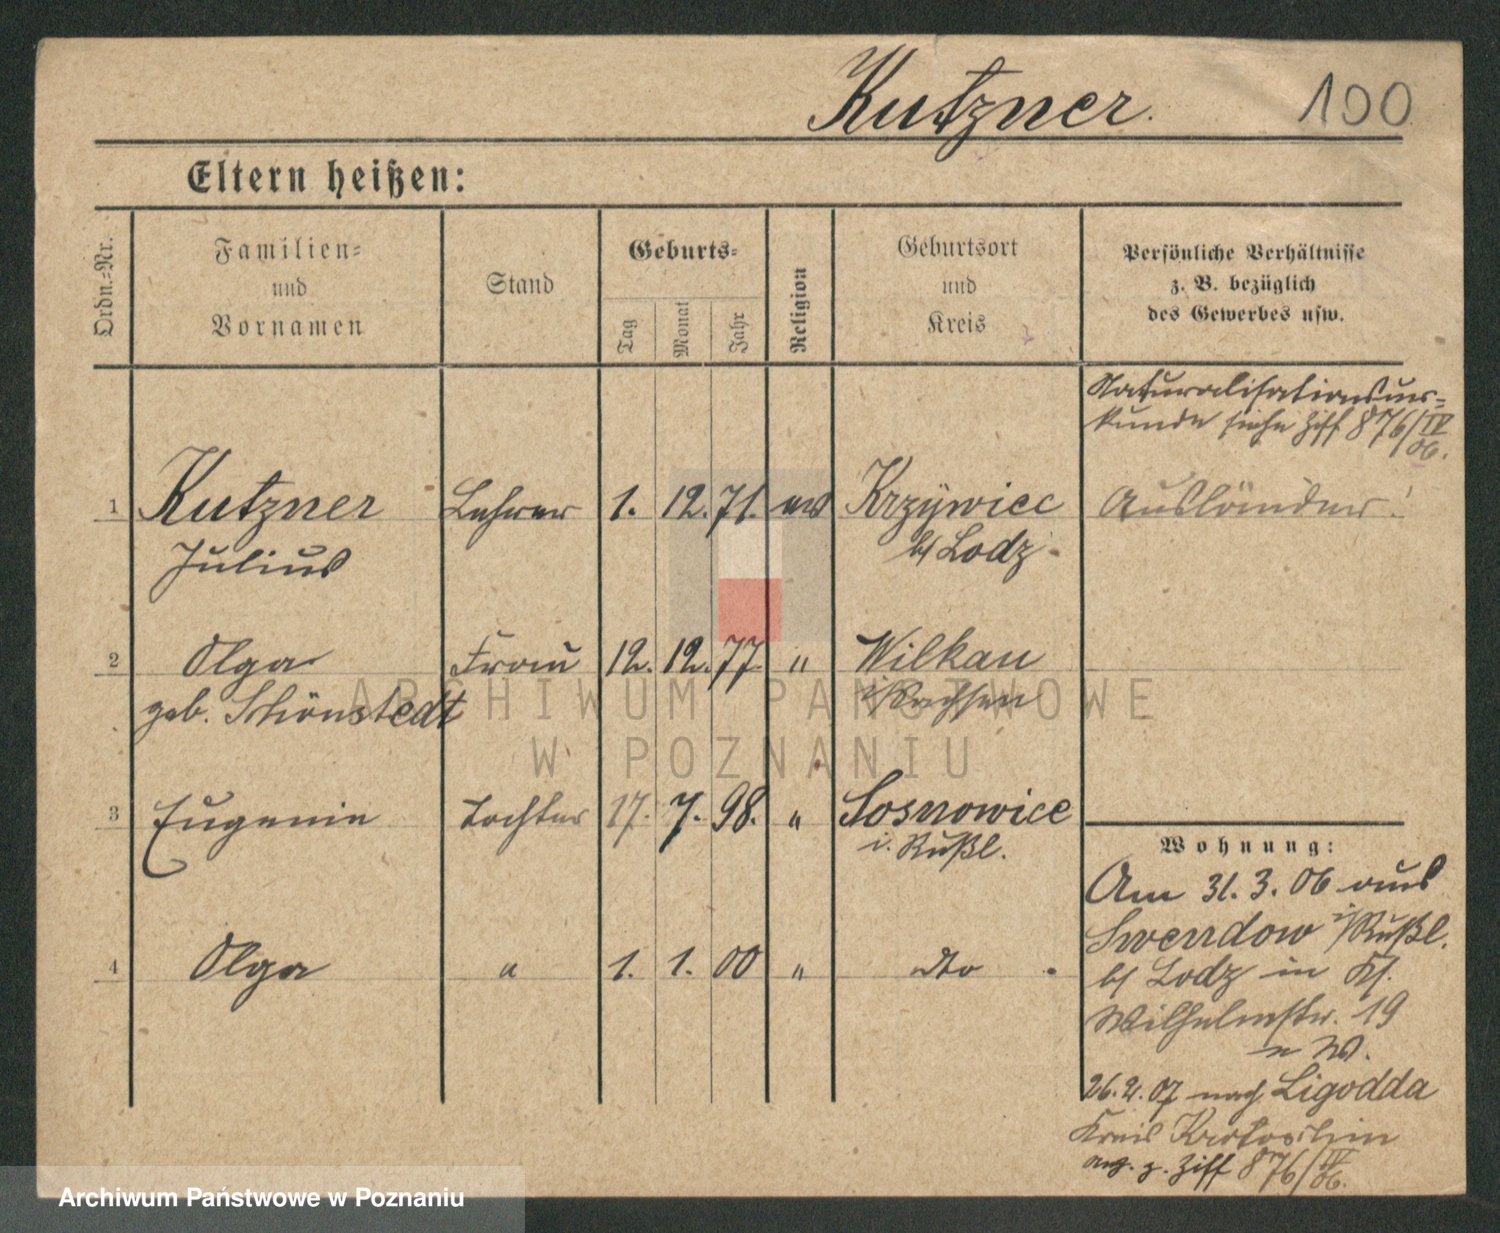 Kutzner.
100
Eltern heißen:
Ordn.-Nr.
Familien-
und
Vornamen
Stand
Geburts-
Tag
Monat
Jahr
Religion
Geburtsort
und
Kreis
Persönliche Verhältnisse
z. B. bezüglich
des Gewerbes usw.
Naturalisationsur=
kunde siehe Ziff 876/IV
06.
1 Kutzner Lehrer 1. 12. 71. ev Krzywicc Ausländer!
Julius b/ Lodz.
2 Olga Frau 12. 12. 77. " Wilkau
geb. Schönstedt i/Sachsen
3 Eugenie Tochter 17. 7. 98. " Sosnowice
i. Rußl.
4 Olga " 1. 1. 00 " dto
Wohnung:
Am 31. 3. 06 aus
Swerrdow i/Rußl.
b/ Lodz in Kf.
Wilhelmstr. 19
n W.
26. 2. 07 nach Ligodda
Kreis Krotoschin
z. Ziff 876/IV
06.
ARCHIWUM PAŃSTWOWE
W POZNANIU
Archiwum Państwowe w Poznaniu